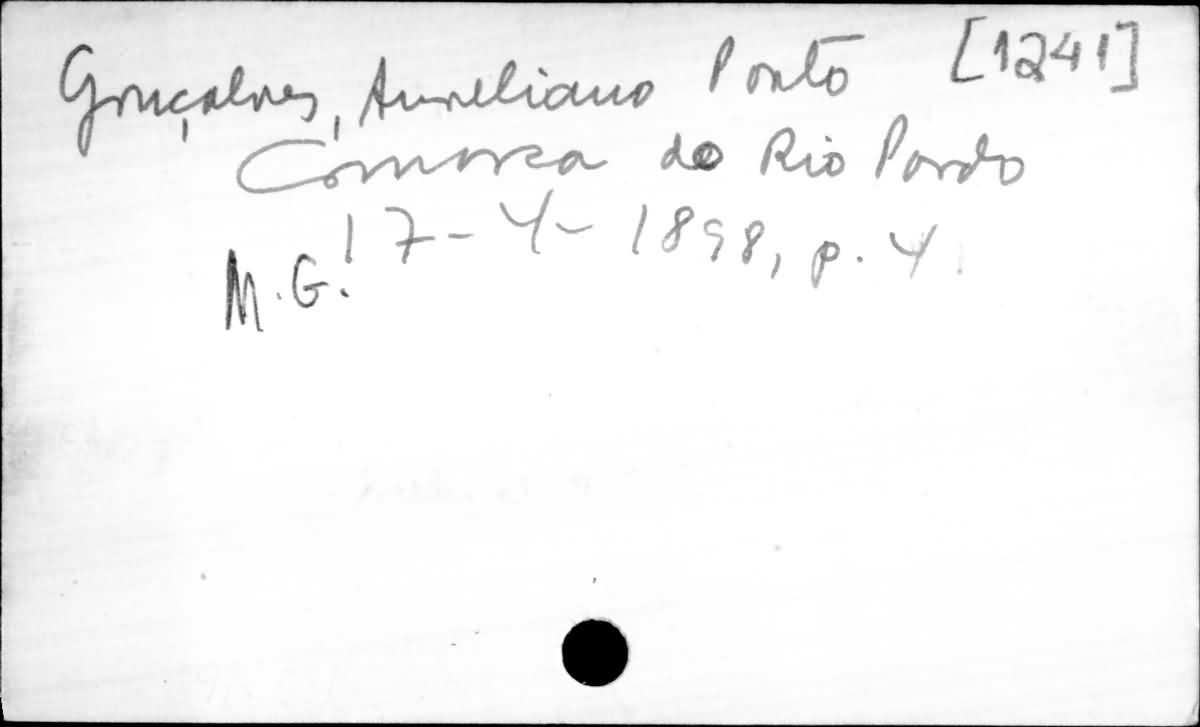 Gonçalves, Aureliano Porto [1241]
Comarca do Rio Pardo
17-4-1898, p. 4.
M.G.